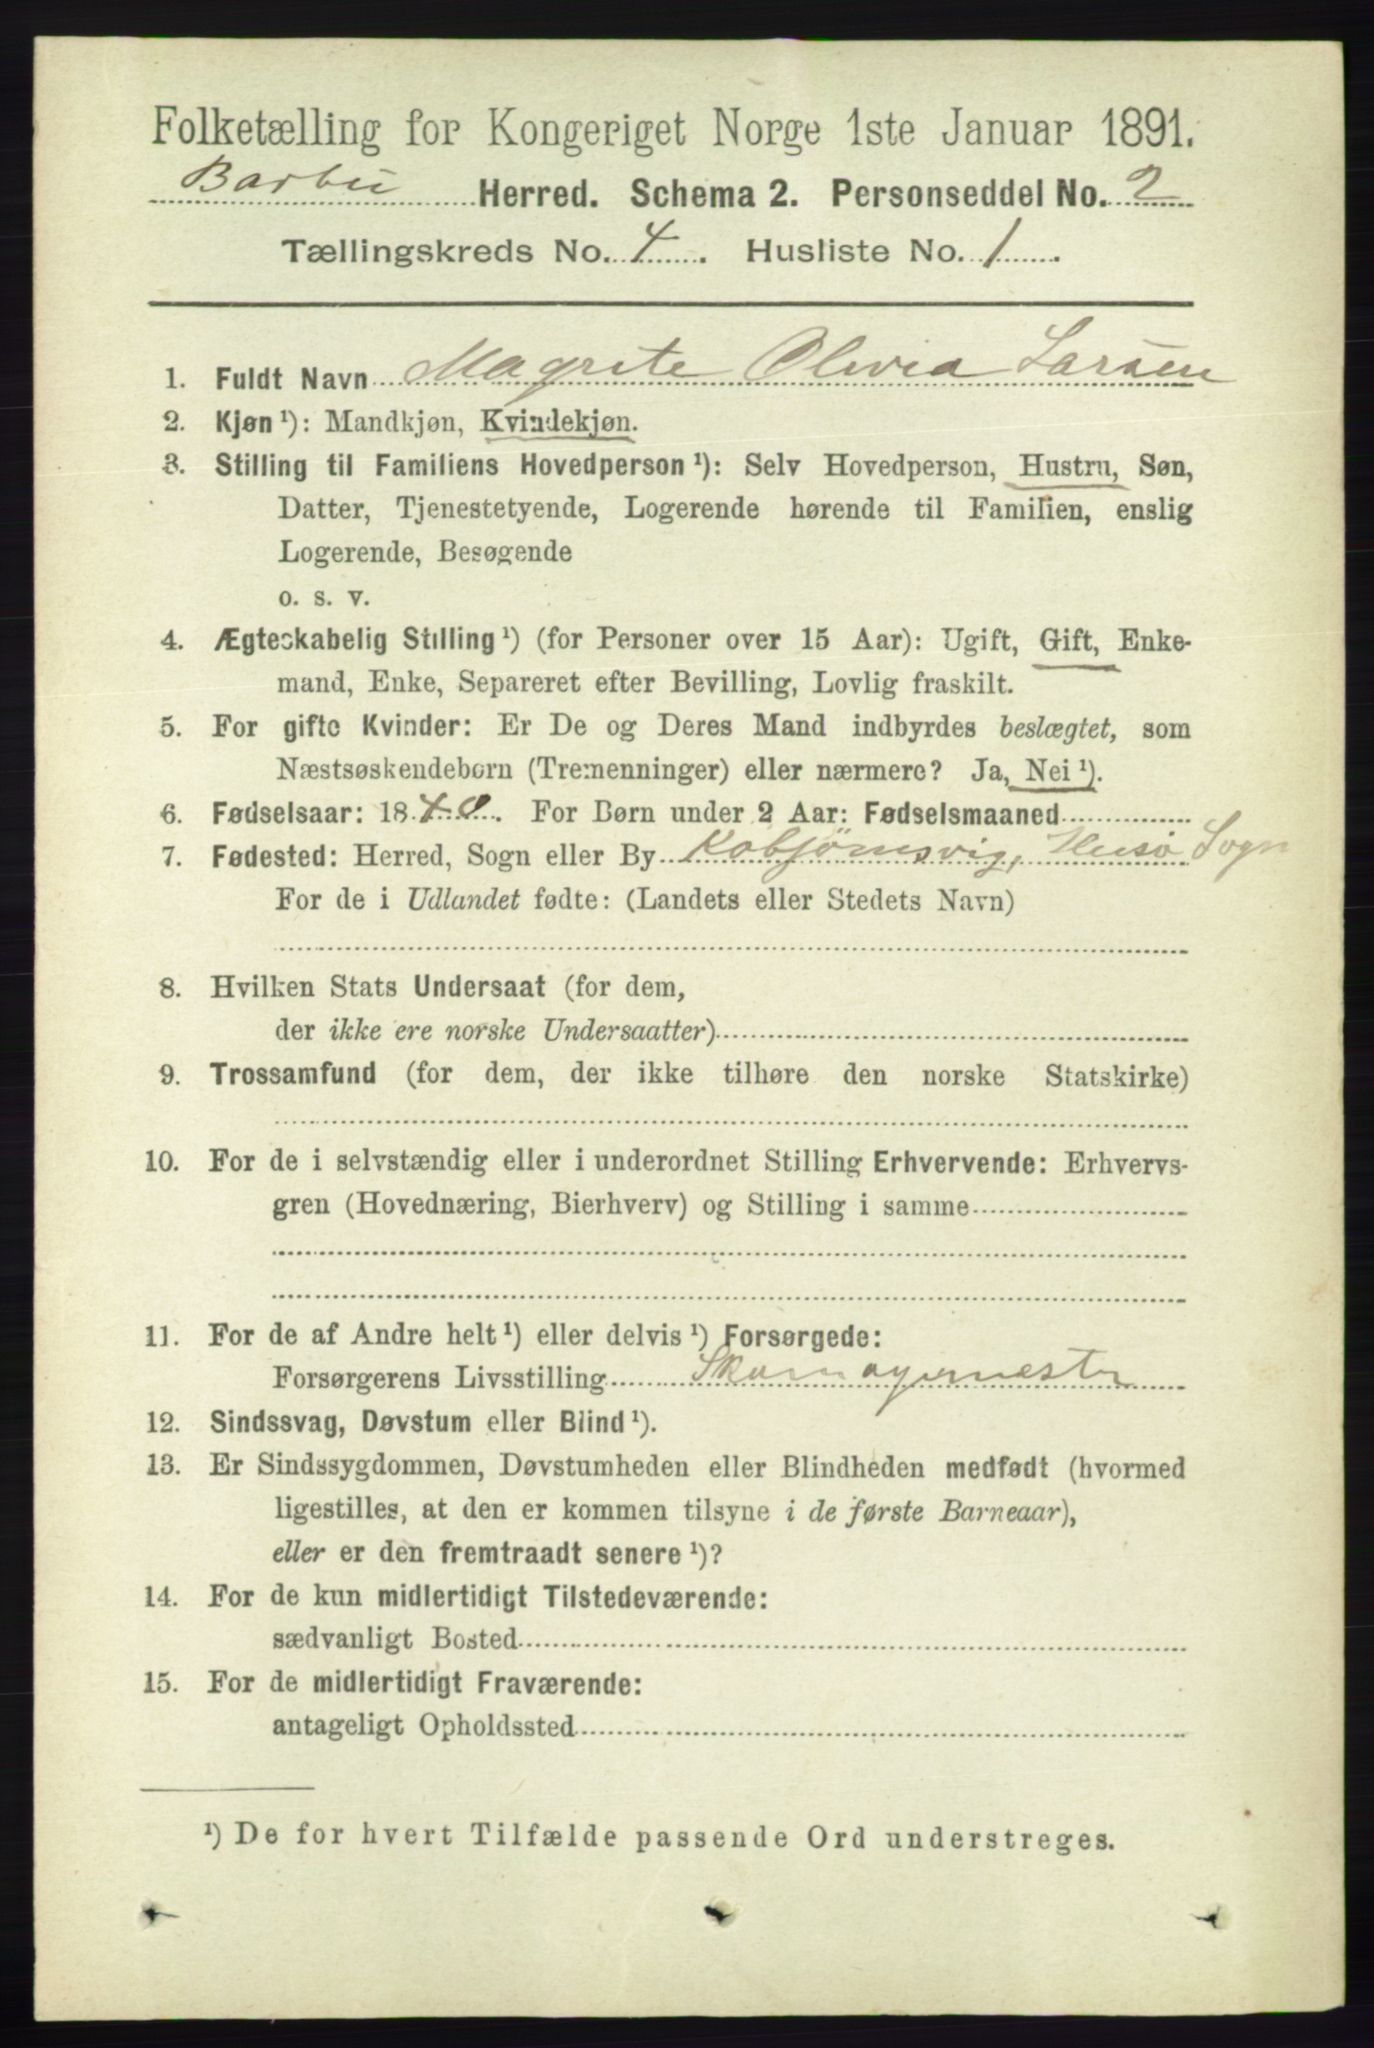 Folketælling for Kongeriget Norge 1ste Januar 1891.
Barbu Herred. Schema 2. Personseddel No. 2
Tællingskreds No. 4. Husliste No. 1.
1. Fuldt Navn Magrete Olivia Larsen
2. Kjøn¹): Mandkjøn, Kvindekjøn.
3. Stilling til Familiens Hovedperson¹): Selv Hovedperson, Hustru, Søn,
Datter, Tjenestetyende, Logerende hørende til Familien, enslig
Logerende, Besøgende
o. s. v.
4. Ægteskabelig Stilling¹) (for Personer over 15 Aar): Ugift, Gift, Enke-
mand, Enke, Separeret efter Bevilling, Lovlig fraskilt.
5. For gifte Kvinder: Er De og Deres Mand indbyrdes beslægtet, som
Næstsøskendebørn (Tremenninger) eller nærmere? Ja, Nei¹).
6. Fødselsaar: 1840. For Børn under 2 Aar: Fødselsmaaned
7. Fødested: Herred, Sogn eller By Kobjørnsvig, Hisø Sogn
For de i Udlandet fødte: (Landets eller Stedets Navn)
8. Hvilken Stats Undersaat (for dem,
der ikke ere norske Undersaatter)
9. Trossamfund (for dem, der ikke tilhøre den norske Statskirke)
10. For de i selvstændig eller i underordnet Stilling Erhvervende: Erhvervs-
gren (Hovednæring, Bierhverv) og Stilling i samme
11. For de af Andre helt¹) eller delvis¹) Forsørgede:
Forsørgerens Livsstilling Skomagermester
12. Sindssvag, Døvstum eller Blind¹).
13. Er Sindssygdommen, Døvstumheden eller Blindheden medfødt (hvormed
ligestilles, at den er kommen tilsyne i de første Barneaar),
eller er den fremtraadt senere¹)?
14. For de kun midlertidigt Tilstedeværende:
sædvanligt Bosted
15. For de midlertidigt Fraværende:
antageligt Opholdssted
¹) De for hvert Tilfælde passende Ord understreges.